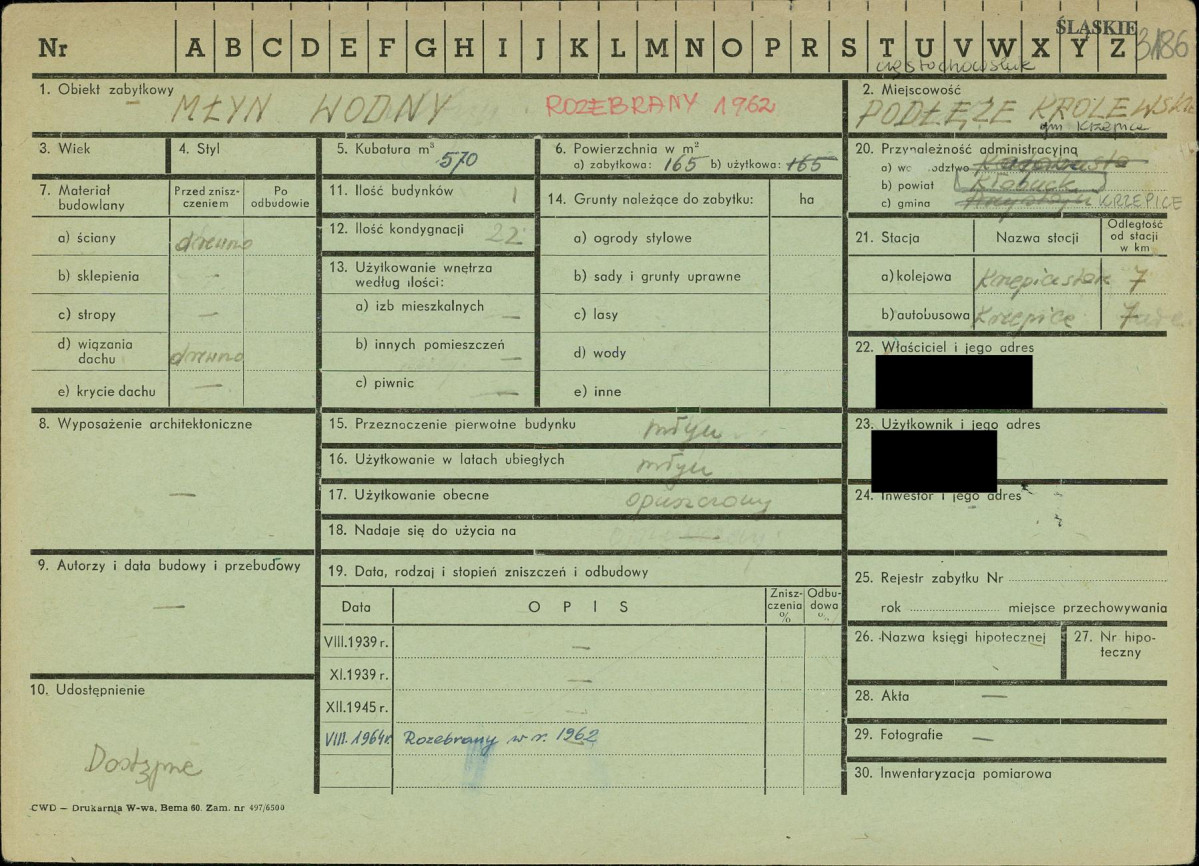 ŚLĄSKIE
Nr A B C D E F G H I J K L M N O P R S T U V W X Y Z 3186
częstochowskie
1. Obiekt zabytkowy MŁYN WODNY ROZEBRANY 1962
2. Miejscowość
PODŁĘŻE KRÓLEWSKIE
gm Krzepice
3. Wiek
4. Styl
5. Kubatura m³ 570
6. Powierzchnia w m²
a) zabytkowa: 165 b) użytkowa: 165
20. Przynależność administracyjna
a) województwo
b) powiat Kłobuck
c) gmina KRZEPICE
7. Materiał budowlany
Przed zniszczeniem
Po odbudowie
a) ściany drewno
b) sklepienia —
c) stropy —
d) wiązania dachu drewno
e) krycie dachu —
11. Ilość budynków 1
12. Ilość kondygnacji 22
13. Użytkowanie wnętrza według ilości:
a) izb mieszkalnych —
b) innych pomieszczeń —
c) piwnic —
14. Grunty należące do zabytku: ha
a) ogrody stylowe
b) sady i grunty uprawne
c) lasy
d) wody
e) inne
21. Stacja Nazwa stacji Odległość od stacji w km
a) kolejowa 7
b) autobusowa Krzepice 7
22. Właściciel i jego adres
23. Użytkownik i jego adres
24. Inwestor i jego adres
8. Wyposażenie architektoniczne
—
15. Przeznaczenie pierwotne budynku młyn
16. Użytkowanie w latach ubiegłych młyn
17. Użytkowanie obecne opuszczony
18. Nadaje się do użycia na —
9. Autorzy i data budowy i przebudowy
—
19. Data, rodzaj i stopień zniszczeń i odbudowy
Data OPIS Zniszczenia % Odbudowa %
VIII.1939 r. —
XI.1939 r. —
XII.1945 r. —
VIII.1964r. Rozebrany w r. 1962
25. Rejestr zabytku Nr
rok miejsce przechowywania
26. Nazwa księgi hipotecznej
27. Nr hipoteczny
28. Akta —
29. Fotografie —
30. Inwentaryzacja pomiarowa
10. Udostępnienie
Dostępne
CWD — Drukarnia W-wa, Bema 60. Zam. nr 497/6500